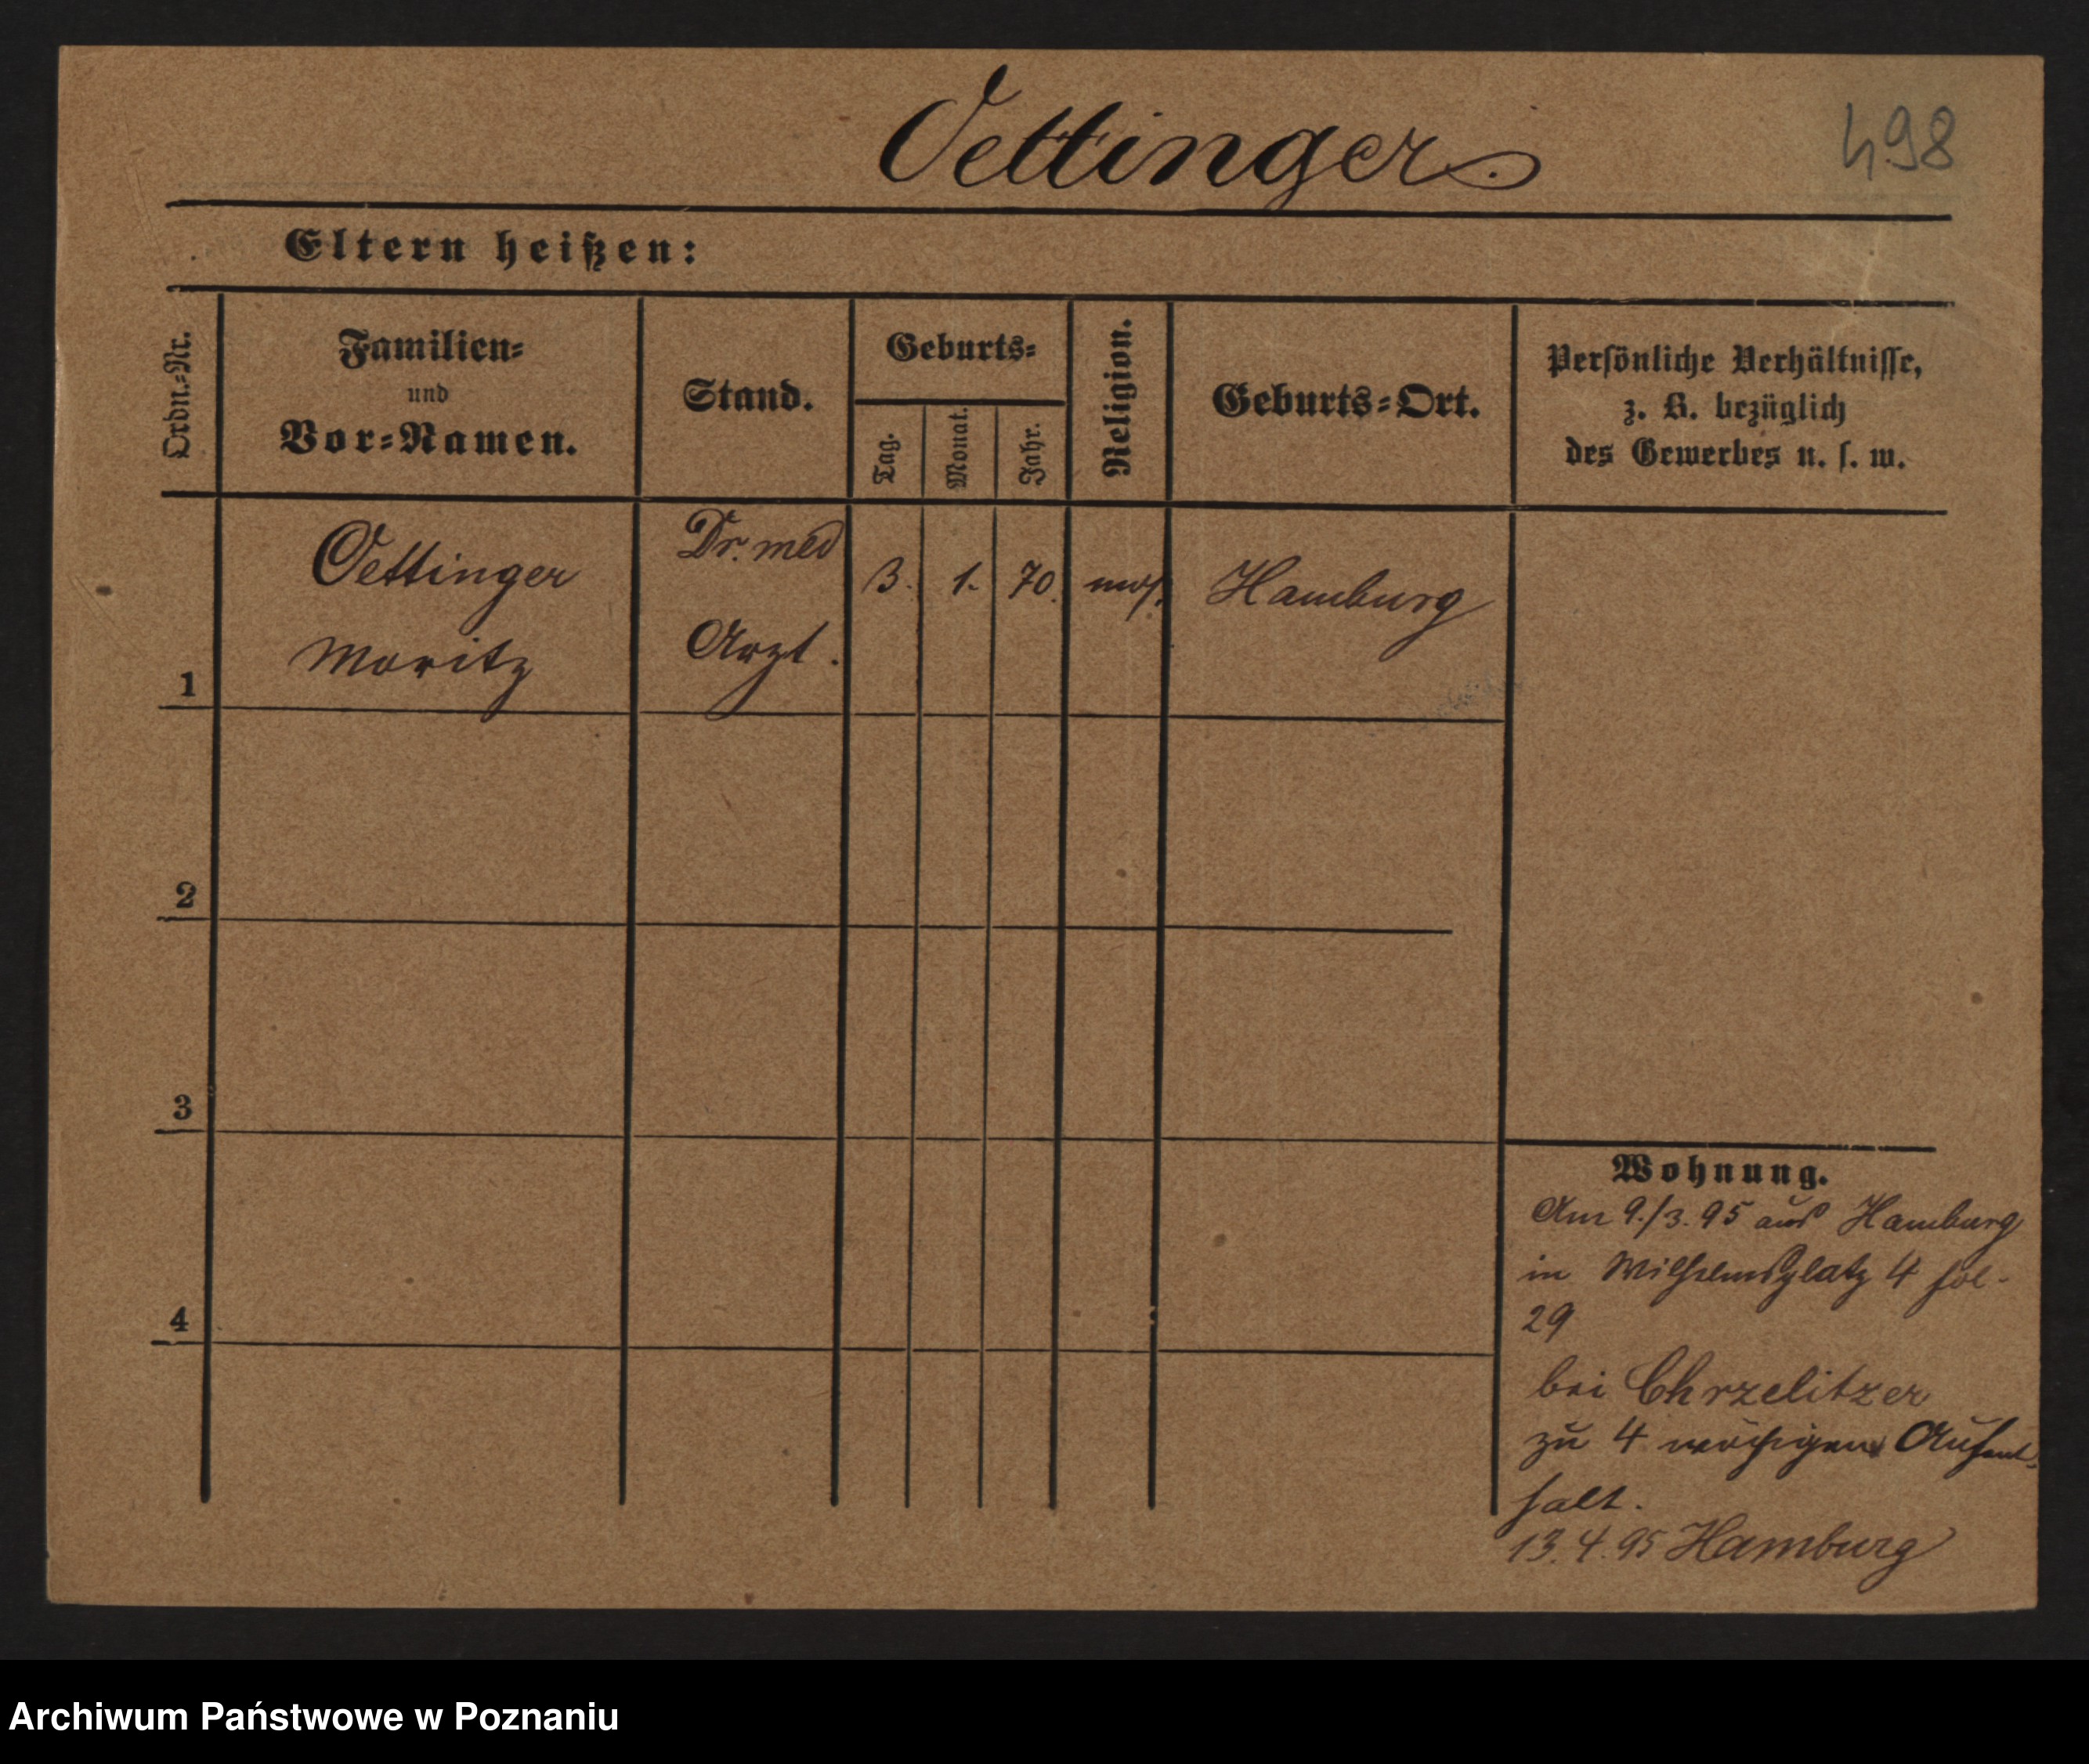 Oettinger.
498
Eltern heißen:
Ordn.-Nr.
Familien-
und
Vor-Namen.
Stand.
Geburts-
Tag.
Monat.
Jahr.
Religion.
Geburts-Ort.
Persönliche Verhältnisse,
z. B. bezüglich
des Gewerbes u. s. w.
1
Oettinger
Moritz
Dr. med
Arzt.
3.
1.
70.
mos.
Hamburg
2
3
4
Wohnung.
Am 9./3.95 aus Hamburg
in Wilhelmsplatz 4 fol.
29
bei Chrzelitzer
zu 4 wöchigem Aufent-
halt.
13.4.95 Hamburg
Archiwum Państwowe w Poznaniu